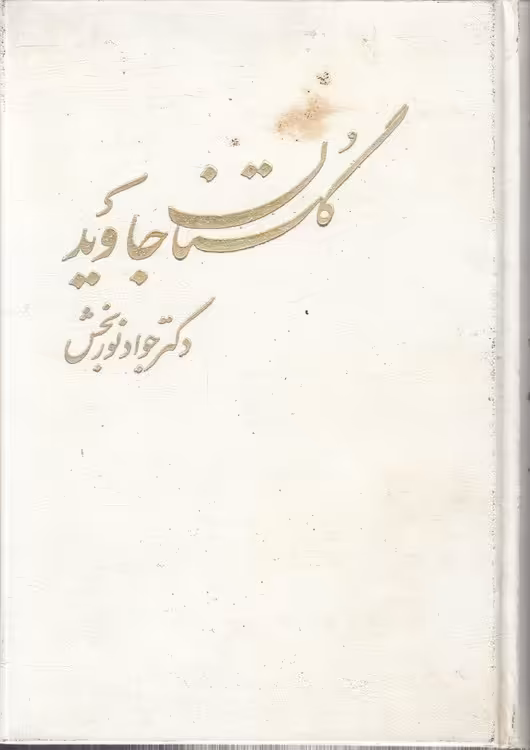 گلستان جاوید
دکتر جواد نوربخش